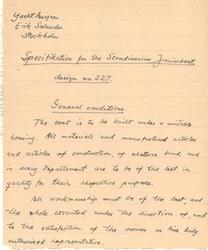 Yacht Designer
Erik Salander
Stockholm
Specifikation for the Scandinavian Juniorboat
design no 227.
General conditions.
The boat is to be built under a suitable
housing. All materials and manufactured articles
and articles of construction, of whatever kind and
in every Departement are to be of the best in
quality for their respective purpose.
All workmanship must be of the best, and
the whole excicuted under the direction of, and
to the satisfaction of the owner or his duly
authorized representative.